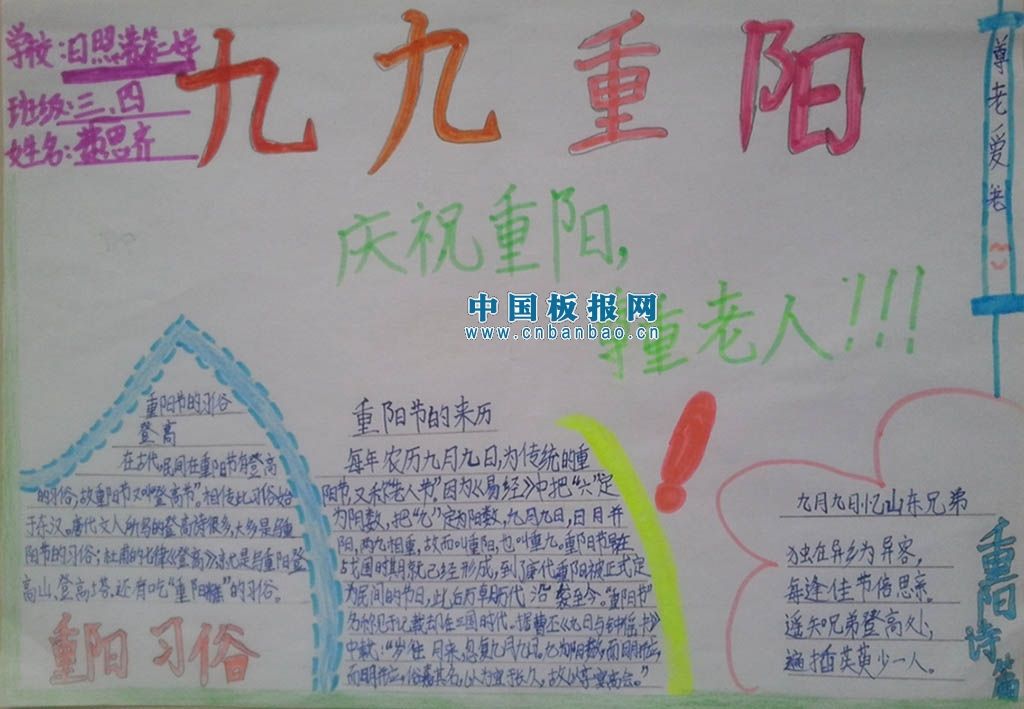 学校:日照
班级:三、四
姓名:
九九重阳
尊老爱老
庆祝重阳,
尊重老人!!!
中国板报网
www.cnbanbao.cn
重阳节的习俗
登高
在古代,民间在重阳节有登高
的习俗,故重阳节又叫“登高节”。相传此习俗始
于东汉。唐代文人所写的登高诗很多,大多是写重
阳节的习俗;杜甫的七律《登高》,就是写重阳登
高山、登高塔。还有吃“重阳糕”的习俗。
重阳习俗
重阳节的来历
每年农历九月九日,为传统的重
阳节,又称《老人节》因为《易经》中把“六”定
为阴数,把“九”定为阳数,九月九日,日月并
阳,两九相重,故而叫重阳,也叫重九。重阳节早在
战国时期就已经形成,到了唐代重阳被正式定
为民间的节日,此后历朝历代沿袭至今。“重阳节”
名称见于记载却在三国时代。据曹丕《九日与钟繇书》
中载:“岁往月来,忽复九月九日。九为阳数,而日月并应,
俗嘉其名,以为宜于长久,故以享宴高会。”
九月九日忆山东兄弟
独在异乡为异客,
每逢佳节倍思亲。
遥知兄弟登高处,
遍插茱萸少一人。
重阳诗篇